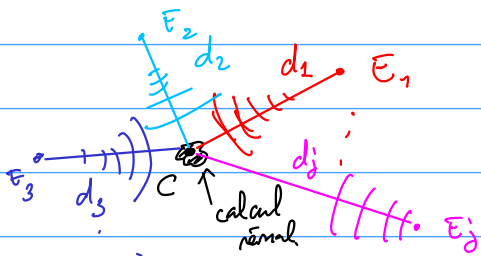 E₂
d₂
d₁
E₁
E₃
d₃
C
calcul
rénal
dj
Ej